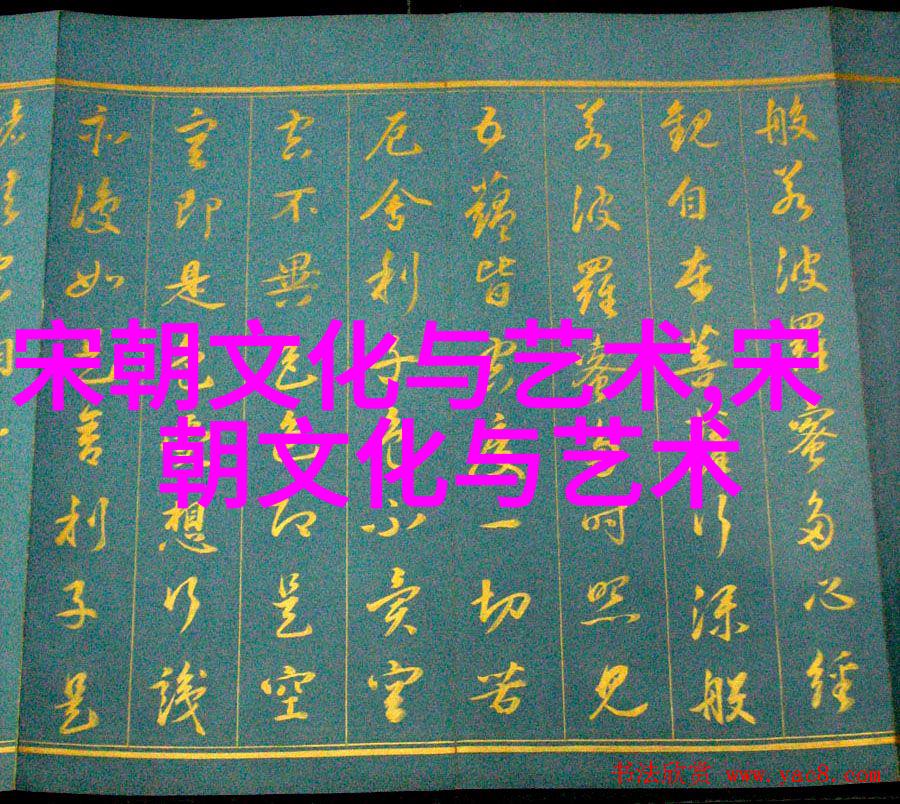 般若波羅蜜多心經
觀自在菩薩行深般
若波羅蜜多時照見
五蘊皆空度一切苦
厄舍利子色不異空
空不異色色即是空
空即是色受想行識
亦復如是舍利子是
宋朝文化与艺术,宋
朝文化与艺术
书法欣赏 www.yac8.com